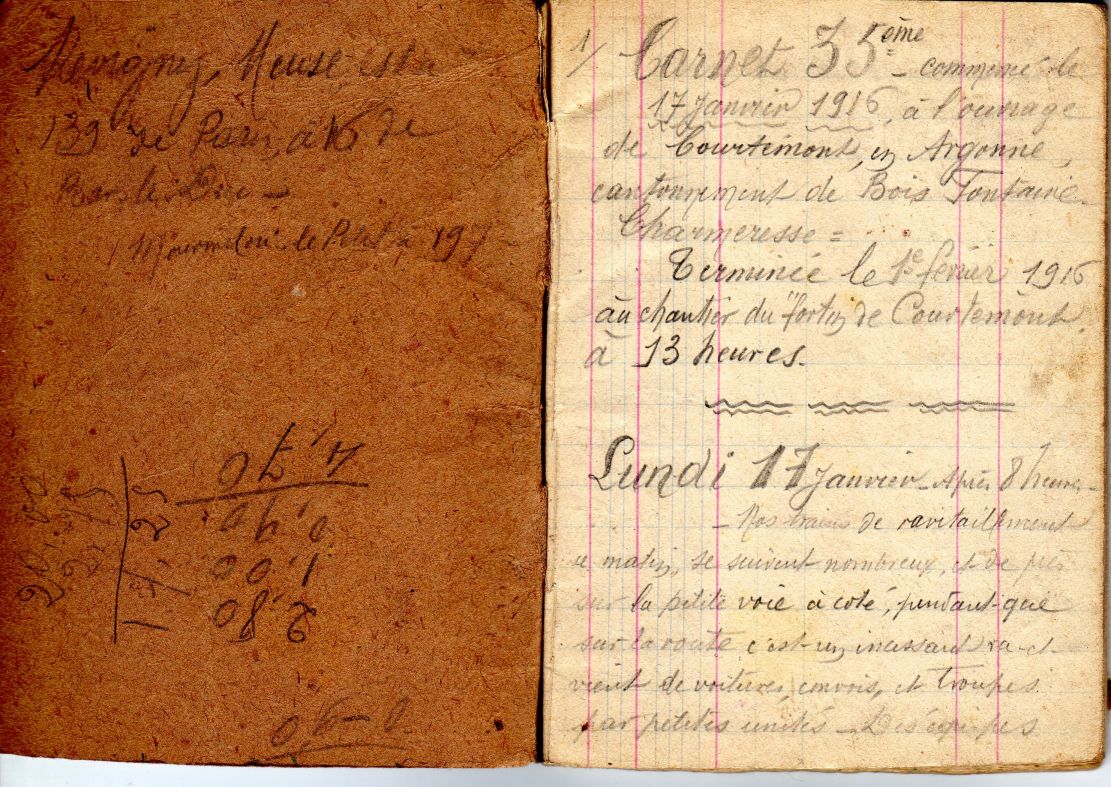 Revigny, Meuse est à
139 de Paris, à 16 de
Bar-le-Duc -
Mourmelon-le-Petit à 197
4,70
0,90
1,00
2,80
0-90
1/ Carnet 35ème - commencé le
17 Janvier 1916, à l'ouvrage
de Courtémont, en Argonne,
cantonnement de Bois Fontaine
Charmeresse =
Terminée le 1e février 1916
au chantier du "fortin de Courtémont
à 13 heures.
Lundi 17 Janvier - Après 8 heures -
- Nos trains de ravitaillement
ce matin, se suivent nombreux, et de près
sur la petite voie à coté, pendant que
sur la route c'est un incessant va-et-
vient de voitures, convois, et troupes
par petites unités - Des équipes